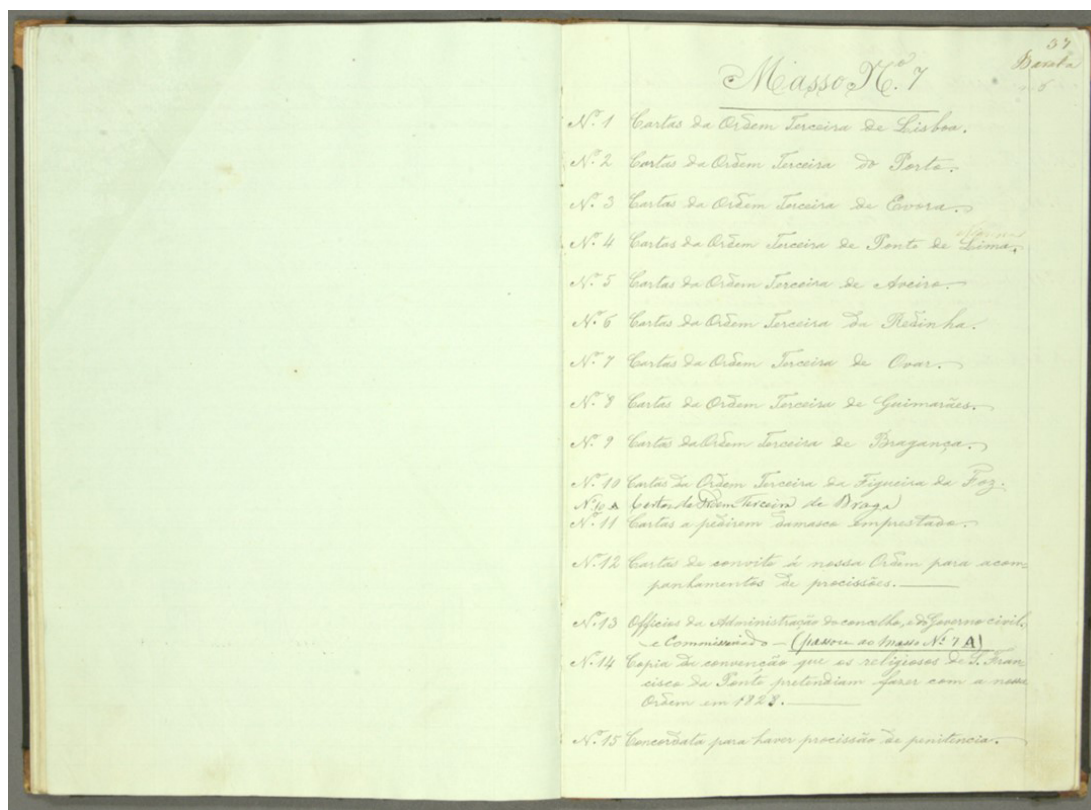 37
Masso N.º 7
N.º 1 Cartas da Ordem Terceira de Lisboa.
N.º 2 Cartas da Ordem Terceira do Porto.
N.º 3 Cartas da Ordem Terceira de Evora.
N.º 4 Cartas da Ordem Terceira de Ponte de Lima.
N.º 5 Cartas da Ordem Terceira de Aveiro.
N.º 6 Cartas da Ordem Terceira da Redinha.
N.º 7 Cartas da Ordem Terceira de Ovar.
N.º 8 Cartas da Ordem Terceira de Guimarães.
N.º 9 Cartas da Ordem Terceira de Bragança.
N.º 10 Cartas da Ordem Terceira da Figueira da Foz.
N.º 10 A Cartas da Ordem Terceira de Braga
N.º 11 Cartas a pedirem damasco emprestado.
N.º 12 Cartas de convite á nossa Ordem para acom
panhamentos de procissões.
N.º 13 Officios da Administração do concelho, e do Governo civil,
e Commissariado - (passou ao Masso N.º 7 A)
N.º 14 Copia da convenção que os religiosos de S. Fran
cisco da Ponte pretendiam fazer com a nossa
Ordem em 1828.
N.º 15 Concordata para haver procissão de penitencia.